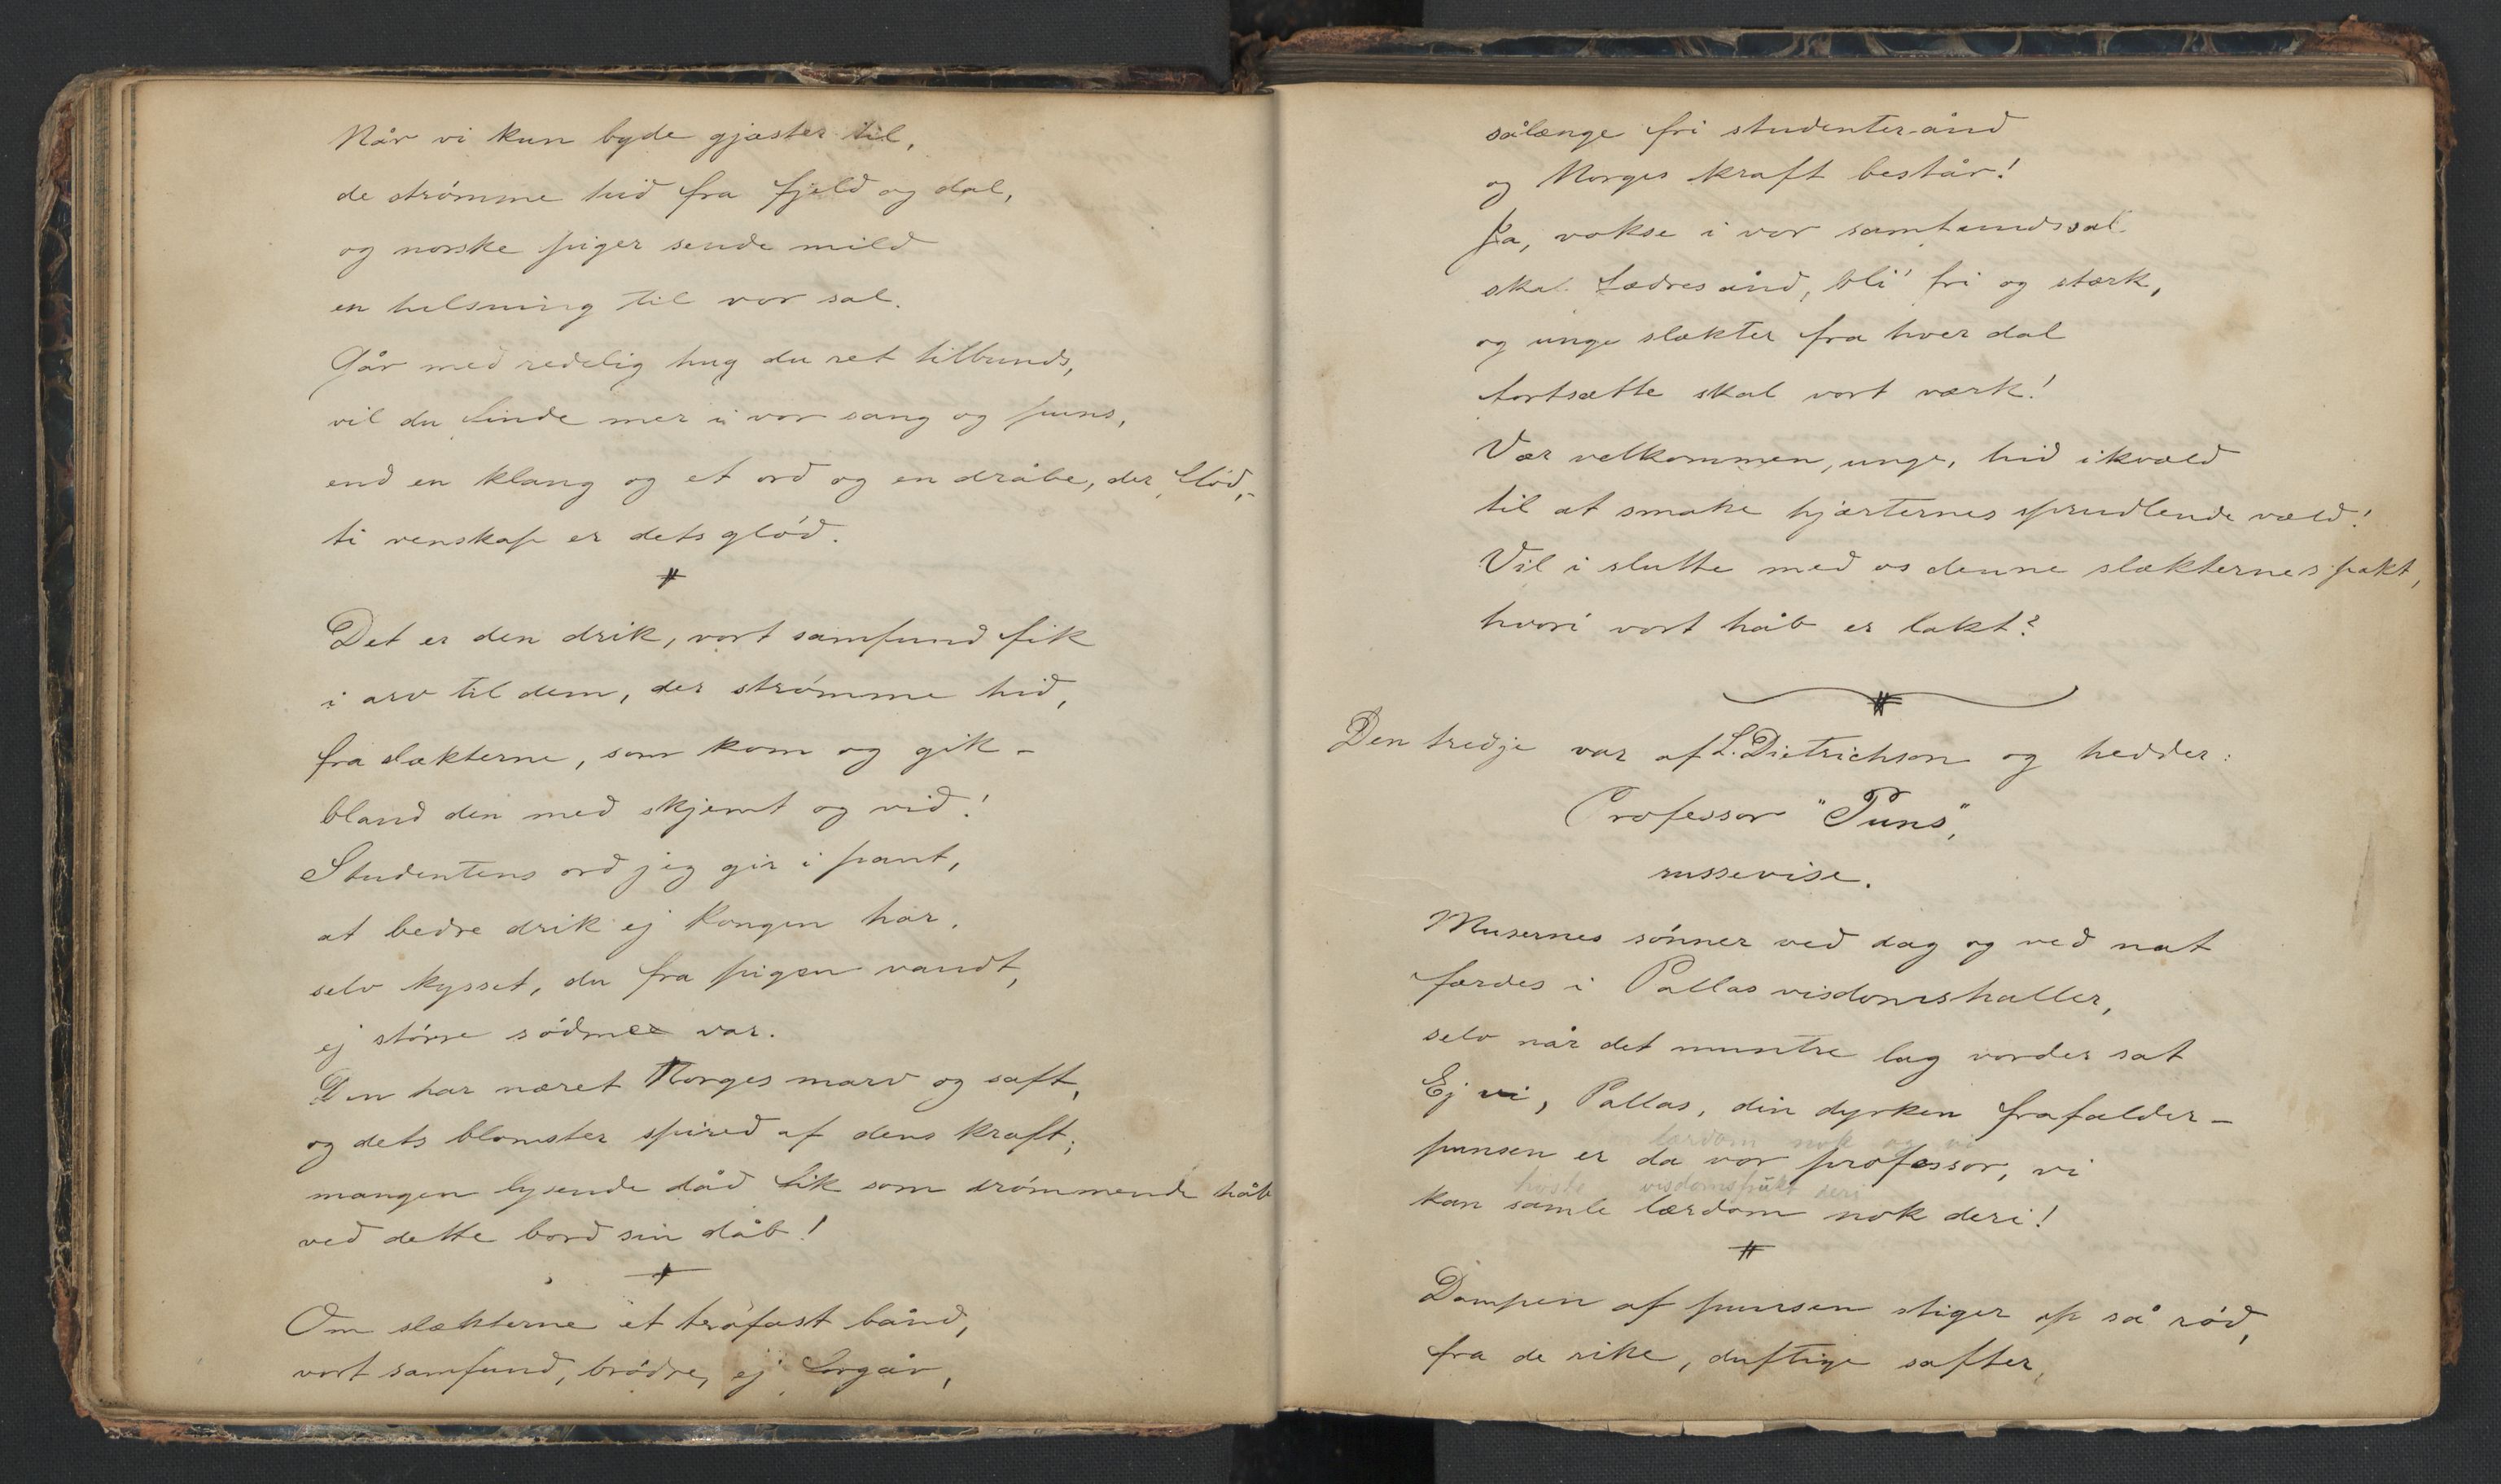 Når vi kun byde gjæster til,
de strømme hid fra fjeld og dal,
og norske piger sende mild
en helsning til vor sal.
Går med redelig hug du ret tilbunds,
vil du finde mer i vor sang og puns,
end en klang og et ord og en dråbe, der flød,-
ti venskap er dets glød.
Det er den drik, vort samfund fik
i arv til dem, der strømme hid,
fra slækterne, som kom og gik –
bland den med skjemt og vid!
Studentens ord jeg gir i pant,
at bedre drik ej Kongen har,
selv kysset, du fra pigen vandt,
ej større sødme var.
Den har næret Norges marv og saft,
og dets blomster spired af dens kraft;
mangen lysende dåd fik som drømmende håb
ved dette bord sin dåb!
Om slækterne et trofast bånd,
vort samfund, brødre, ej forgår,
sålænge fri studenterånd
og Norges kraft består!
Ja, vokse i vor samfundssal
skal fædres ånd, bli' fri og stærk,
og unge slækter fra hver dal
fortsætte skal vort værk!
Vær velkommen, unge, hid ikvæld
til at smake hjærternes sprudlende væld!
Vil i slutte med os denne slækternes pakt,
hvori vort håb er lakt?
Den tredje var af L. Dietrichson og hedder:
Professor "Puns",
russevise.
Musernes sønner ved dag og ved nat
færdes i Pallas visdomshaller,
selv når det muntre lag vorder sat
Ej vi, Pallas, din dyrken frafalder –
lærdom nok og vi
punsen er da vor professor, vi
høste visdomsfrukt deri
kan samle lærdom nok deri!
Dampen af punsen stiger op så rød,
fra de rike, duftige safter,